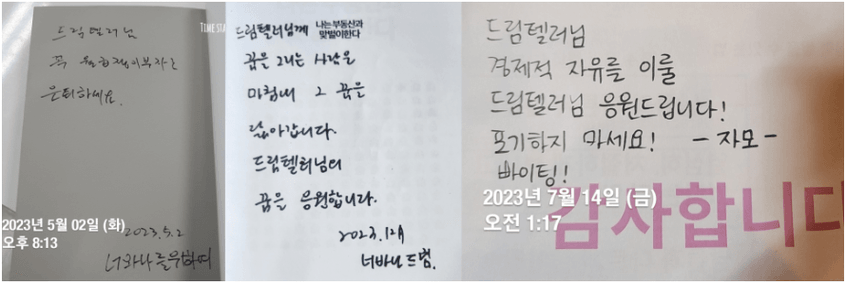 TIME STA
드림텔러님
꼭
은퇴하세요.
2023년 5월 02일 (화)
오후 8:13
2023.5.2
너와나를위하여
드림텔러님께
나는 부동산과
맞벌이한다
꿈을 그리는 사람은
마침내 그 꿈을
닮아갑니다.
드림텔러님의
꿈을 응원합니다.
2023.12月
너바나 드림.
드림텔러님
경제적 자유를 이룰
드림텔러님 응원드립니다!
포기하지 마세요! - 자모 -
빠이팅!
2023년 7월 14일 (금)
오전 1:17
감사합니다